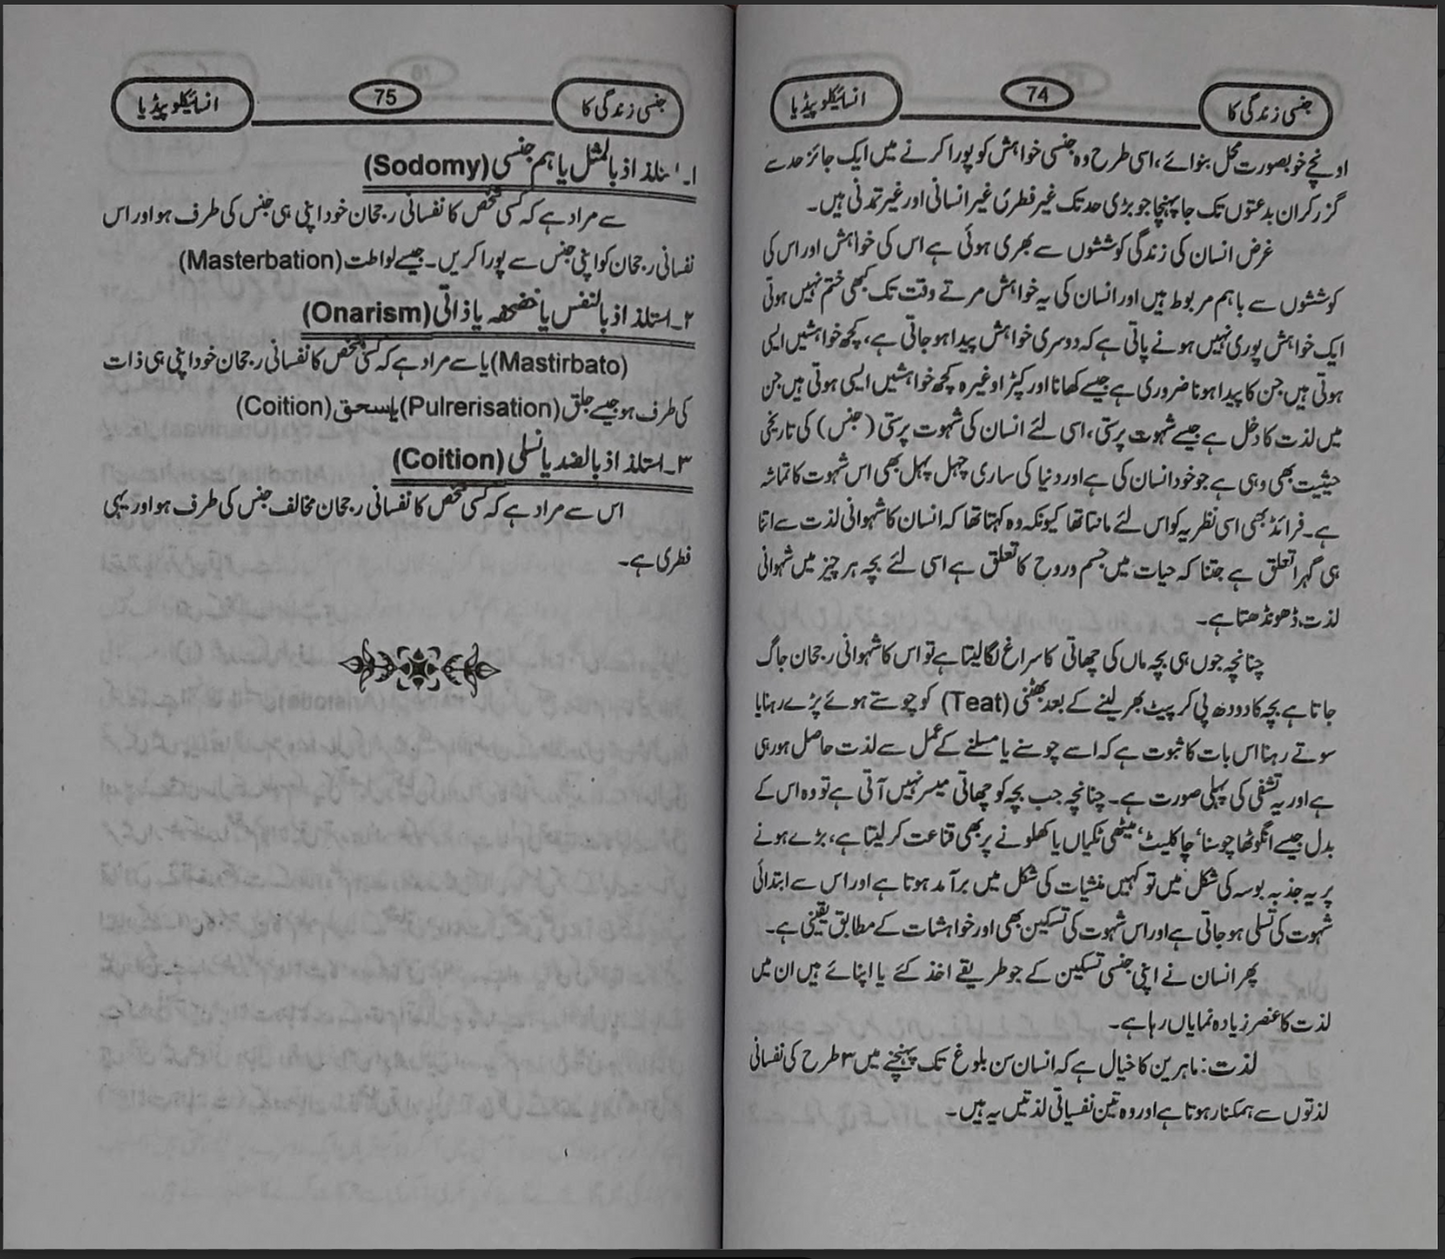 جنسی زندگی کا
74
انسائیکلوپیڈیا
اونچے خوبصورت محل بنوائے، اسی طرح وہ جنسی خواہش کو پورا کرنے میں ایک جائز حد سے
گزر کر ان بدعتوں تک جا پہنچا جو بڑی حد تک غیر فطری غیر انسانی اور غیر تمدنی ہیں۔
غرض انسان کی زندگی کوششوں سے بھری ہوئی ہے اس کی خواہش اور اس کی
کوششوں سے باہم مربوط ہیں اور انسان کی یہ خواہش مرتے وقت تک کبھی ختم نہیں ہوتی
ایک خواہش پوری نہیں ہونے پاتی ہے کہ دوسری خواہش پیدا ہو جاتی ہے، کچھ خواہشیں ایسی
ہوتی ہیں جن کا پیدا ہونا ضروری ہے جیسے کھانا اور کپڑا وغیرہ کچھ خواہشیں ایسی ہوتی ہیں جن
میں لذت کا دخل ہے جیسے شہوت پرستی، اسی لئے انسان کی شہوت پرستی (جنس) کی تاریخی
حیثیت بھی وہی ہے جو خود انسان کی ہے اور دنیا کی ساری چہل پہل بھی اس شہوت کا تماشہ
ہے۔ فرائڈ بھی اسی نظریہ کو اس لئے مانتا تھا کیونکہ وہ کہتا تھا کہ انسان کا شہوانی لذت سے اتنا
ہی گہرا تعلق ہے جتنا کہ حیات میں جسم و روح کا تعلق ہے اسی لئے بچہ ہر چیز میں شہوانی
لذت ڈھونڈھتا ہے۔
چنانچہ جوں ہی بچہ ماں کی چھاتی کا سراغ لگا لیتا ہے تو اس کا شہوانی رجحان جاگ
جاتا ہے بچہ کا دودھ پی کر پیٹ بھر لینے کے بعد بھٹنی (Teat) کو چوستے ہوئے پڑے رہنا یا
سوتے رہنا اس بات کا ثبوت ہے کہ اسے چوسنے یا مسلنے کے عمل سے لذت حاصل ہو رہی
ہے اور یہ تشفی کی پہلی صورت ہے۔ چنانچہ جب بچہ کو چھاتی میسر نہیں آتی ہے تو وہ اس کے
بدل جیسے انگوٹھا چوسنا، چاکلیٹ، میٹھی ٹکیاں یا کھلونے پر بھی قناعت کر لیتا ہے، بڑے ہونے
پر یہ جذبہ بوسہ کی شکل میں تو کہیں منشیات کی شکل میں برآمد ہوتا ہے اور اس سے ابتدائی
شہوت کی تسلی ہو جاتی ہے اور اس شہوت کی تسکین بھی اور خواہشات کے مطابق یقینی ہے۔
پھر انسان نے اپنی جنسی تسکین کے جو طریقے اخذ کئے یا اپنائے ہیں ان میں
لذت کا عنصر زیادہ نمایاں رہا ہے۔
لذت: ماہرین کا خیال ہے کہ انسان سن بلوغ تک پہنچنے میں ۳ طرح کی نفسانی
لذتوں سے ہمکنار ہوتا ہے اور وہ تین نفسیاتی لذتیں یہ ہیں۔
جنسی زندگی کا
75
انسائیکلوپیڈیا
۱۔ استلذاذ بالمثل یا ہم جنسی (Sodomy)
سے مراد ہے کہ کسی شخص کا نفسانی رجحان خود اپنی ہی جنس کی طرف ہو اور اس
نفسانی رجحان کو اپنی جنس سے پورا کریں۔ جیسے لواطت (Masterbation)
۲۔ استلذاذ بالنفس یا ذاتی (Onarism)
(Mastirbato) یا سے مراد ہے کہ کسی شخص کا نفسانی رجحان خود اپنی ہی ذات
کی طرف ہو جیسے جلق (Pulrerisation) یا سحق (Coition)
۳۔ استلذاذ بالضد یا نسلی (Coition)
اس سے مراد ہے کہ کسی شخص کا نفسانی رجحان مخالف جنس کی طرف ہو اور یہی
فطری ہے۔